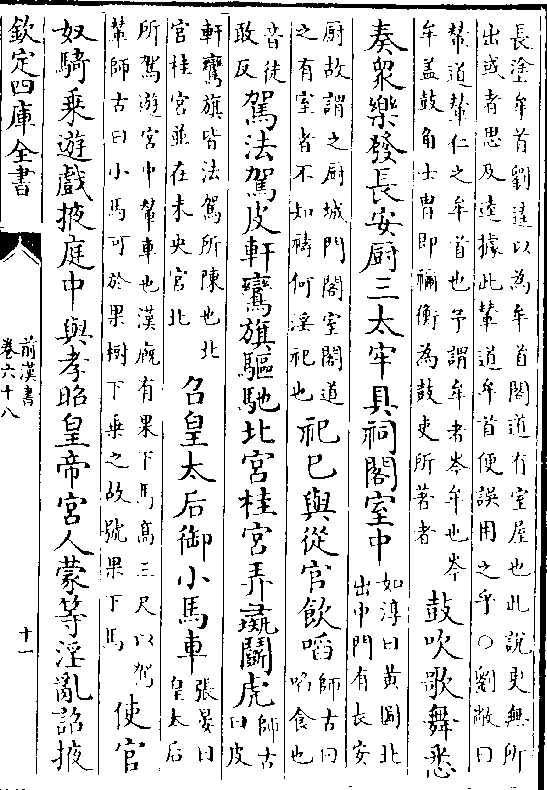 長塗牟首劉逵以為牟首閣道有室屋也此說更無所
出或者思及逵據此輦道牟首便誤用之乎〇劉敞曰
輦道輦仁之牟首也予謂牟者岑牟也岑
牟盖鼓角士胄即禰衡為鼓吏所著者
鼓吹歌舞悉
奏衆樂發長安厨三太牢具祠閣室中
如淳曰黄圖北
出中門有長安
厨故謂之厨城門閣室閣道
之有室者不知禱何淫祀也
祀已與從官飲啗
師古曰
啗食也
音徒
敢反
駕法駕皮軒鸞旗驅馳北宮桂宮弄彘鬭虎
師古
曰皮
軒鸞旗皆法駕所陳也北
官桂宮並在未央官北
召皇太后御小馬車
張晏曰
皇太后
所駕遊宮中輦車也漢廐有果下馬高三尺以駕
輦師古曰小馬可於果樹下乗之故號果下馬
使官
奴騎乗遊戲掖庭中與孝昭皇帝宮人蒙等淫亂詔掖
欽定四庫全書
前漢書
卷六十八
十一